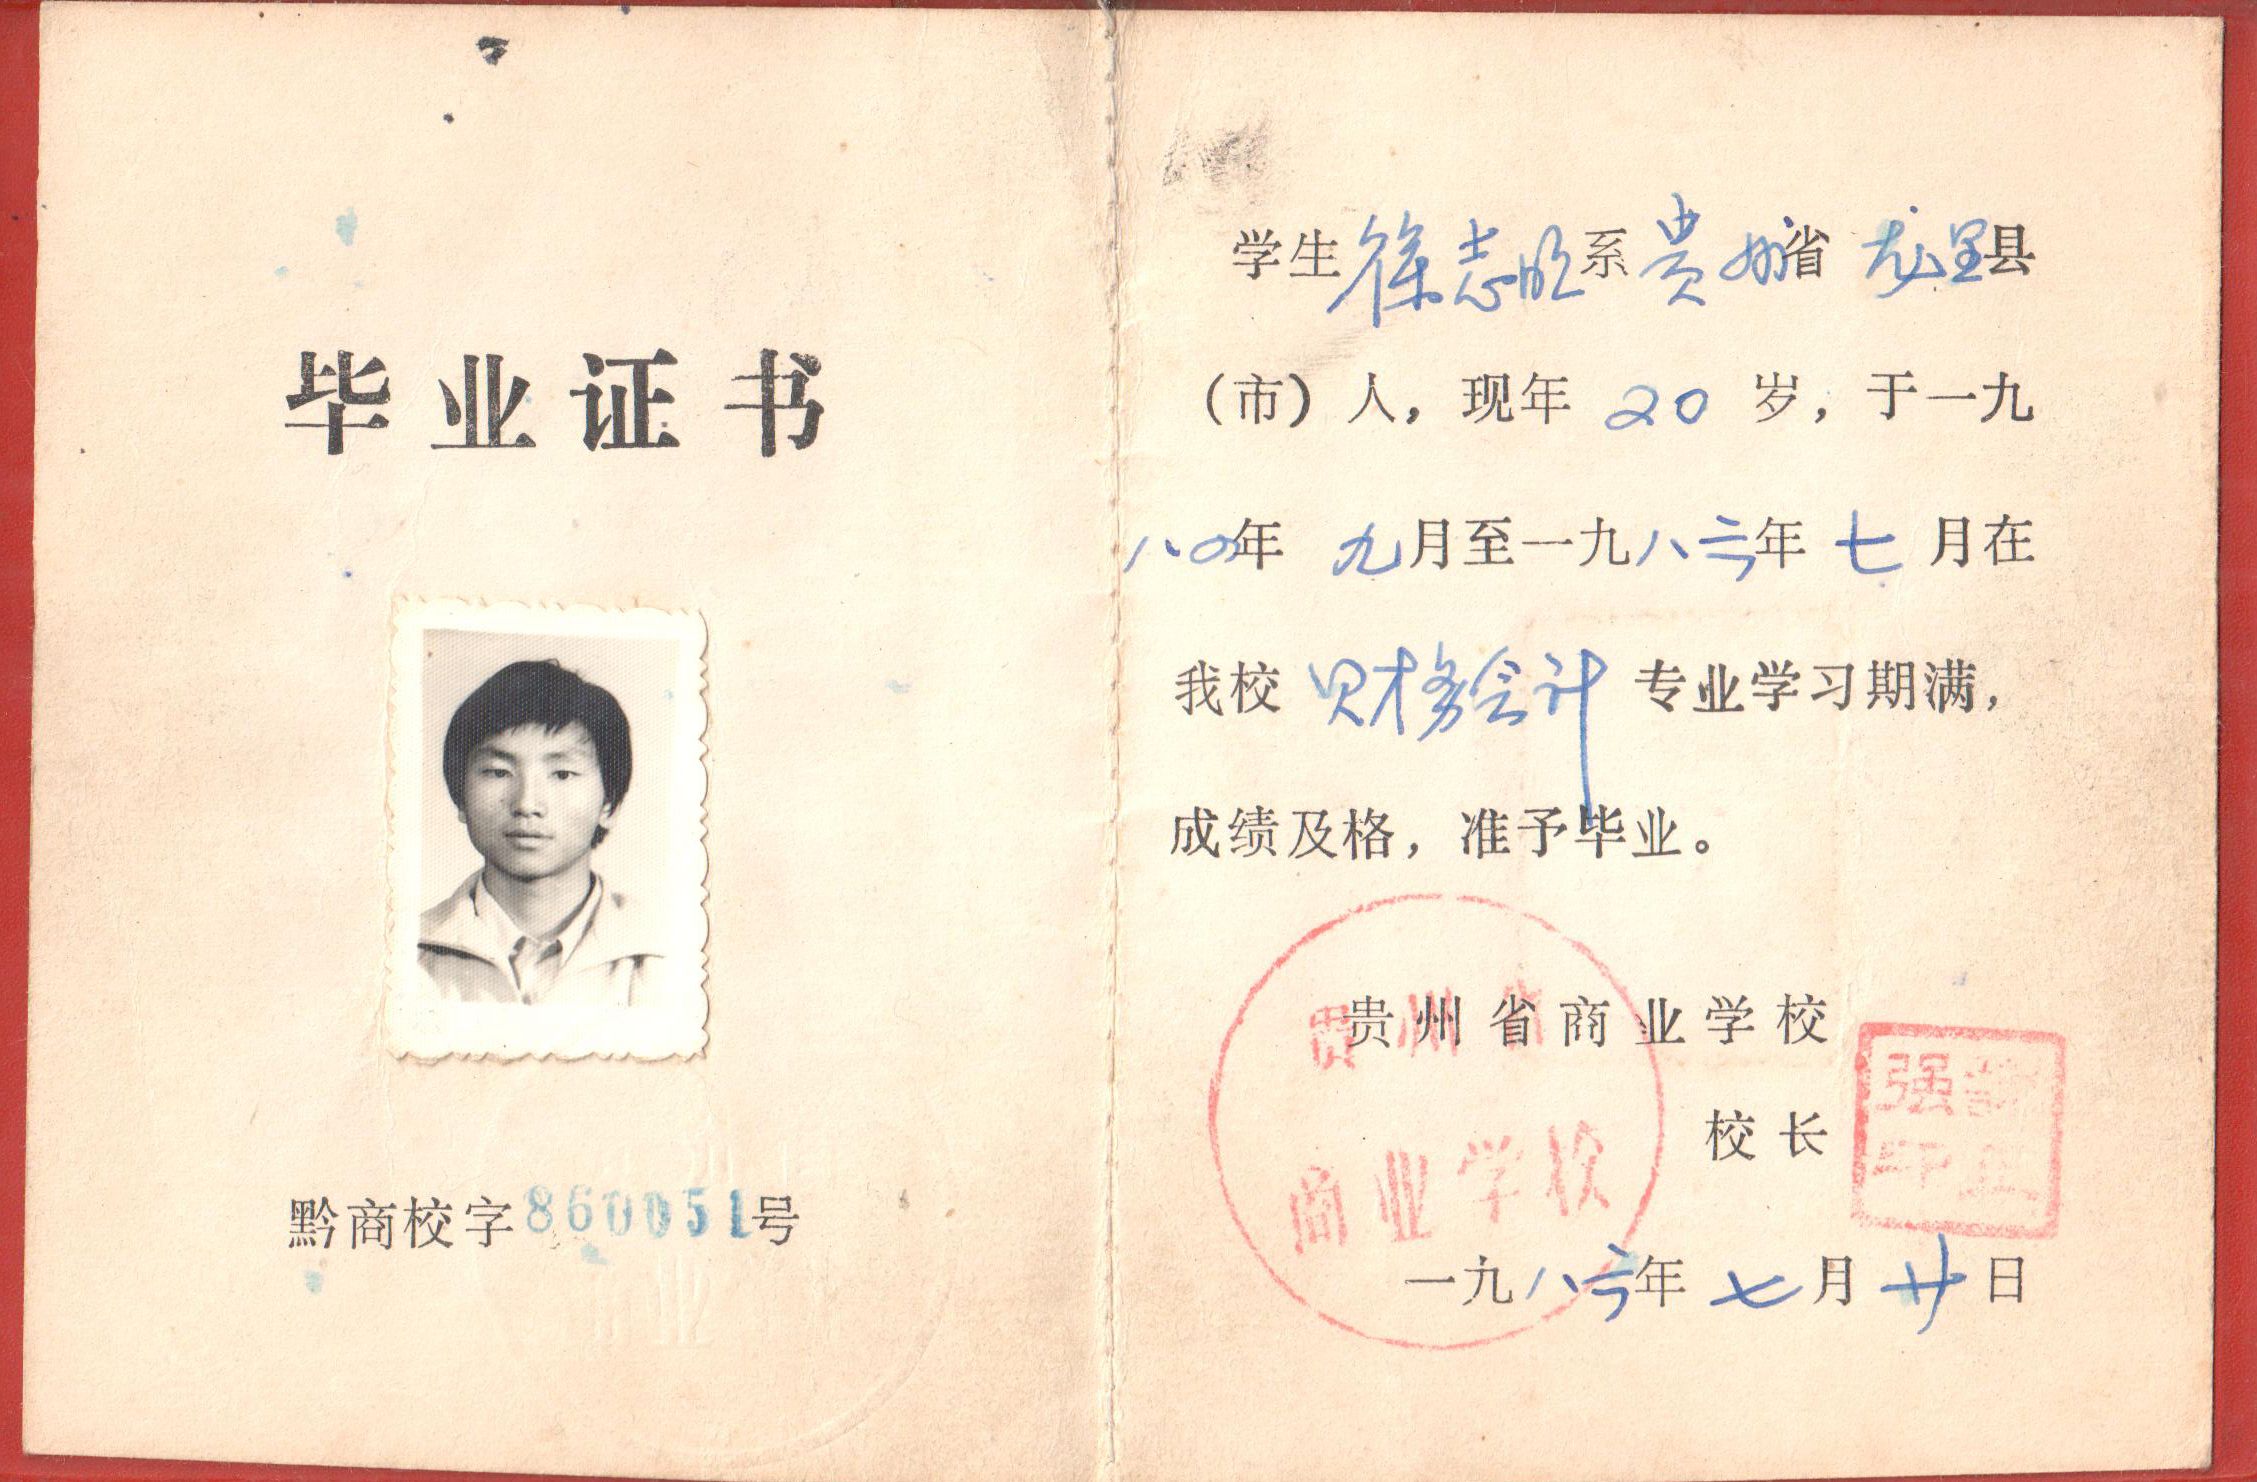 毕业证书
黔商校字860051号
学生徐志明系贵州省龙里县
（市）人，现年 20 岁，于一九
八四年 九月至一九八六年 七 月在
我校 财务会计 专业学习期满，
成绩及格，准予毕业。
贵州省商业学校
校长
一九八六年 七 月 廿 日
贵州省
商业学校
强
印